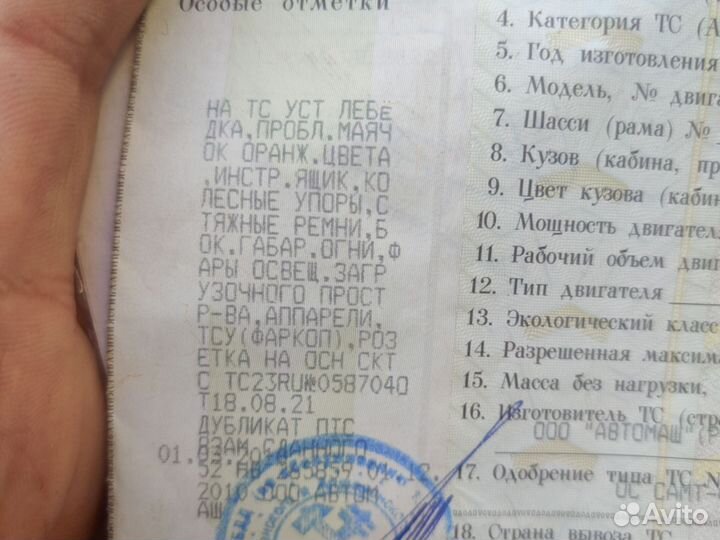 Особые отметки
НА ТС УСТ ЛЕБЕ
ДКА,ПРОБЛ.МАЯЧ
ОК ОРАНЖ.ЦВЕТА
,ИНСТР.ЯЩИК,КО
ЛЕСНЫЕ УПОРЫ,С
ТЯЖНЫЕ РЕМНИ,Б
ОК.ГАБАР.ОГНИ,Ф
АРЫ ОСВЕЩ.ЗАГР
УЗОЧНОГО ПРОСТ
Р-ВА,АППАРЕЛИ,
ТСУ(ФАРКОП),РОЗ
ЕТКА НА ОСН СКТ
С ТС23RU№0587040
Т18.08.21
ДУБЛИКАТ ПТС
ВЗАМ СДАННОГО
01.12.
2010 ООО АВТОМ
АШ
4. Категория ТС (А
5. Год изготовления
6. Модель, № двига
7. Шасси (рама) №
8. Кузов (кабина, пр
9. Цвет кузова (каби
10. Мощность двигател
11. Рабочий объем двиг
12. Тип двигателя
13. Экологический класс
14. Разрешенная максима
15. Масса без нагрузки,
16. Изготовитель ТС (стр
ООО "АВТОМАШ"(Р
17. Одобрение типа ТС №
ОС САМТ-
18. Страна вывоза ТС
Avito